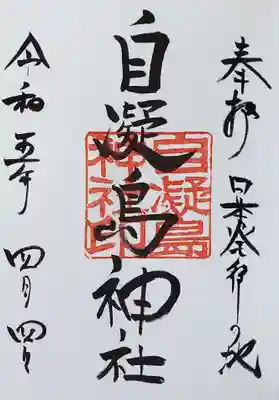 奉拝 日本発祥の地
自凝島神社
自凝島神社印
令和五年 四月四日